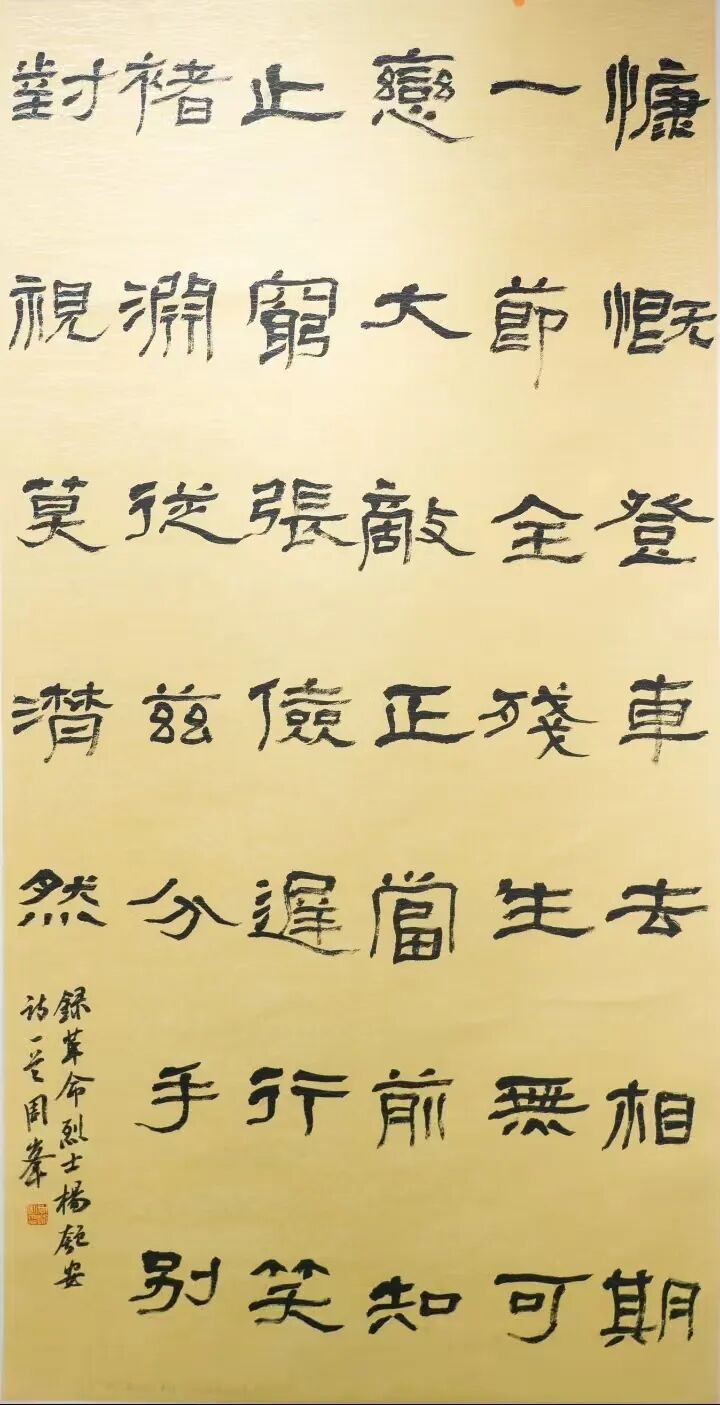 慷慨登車去相期
一節全殘生無可
戀大敵正當前知
止窮張儉遲行笑
褚淵從兹分手别
對視莫潸然
録革命烈士楊匏安
詩一首周峯